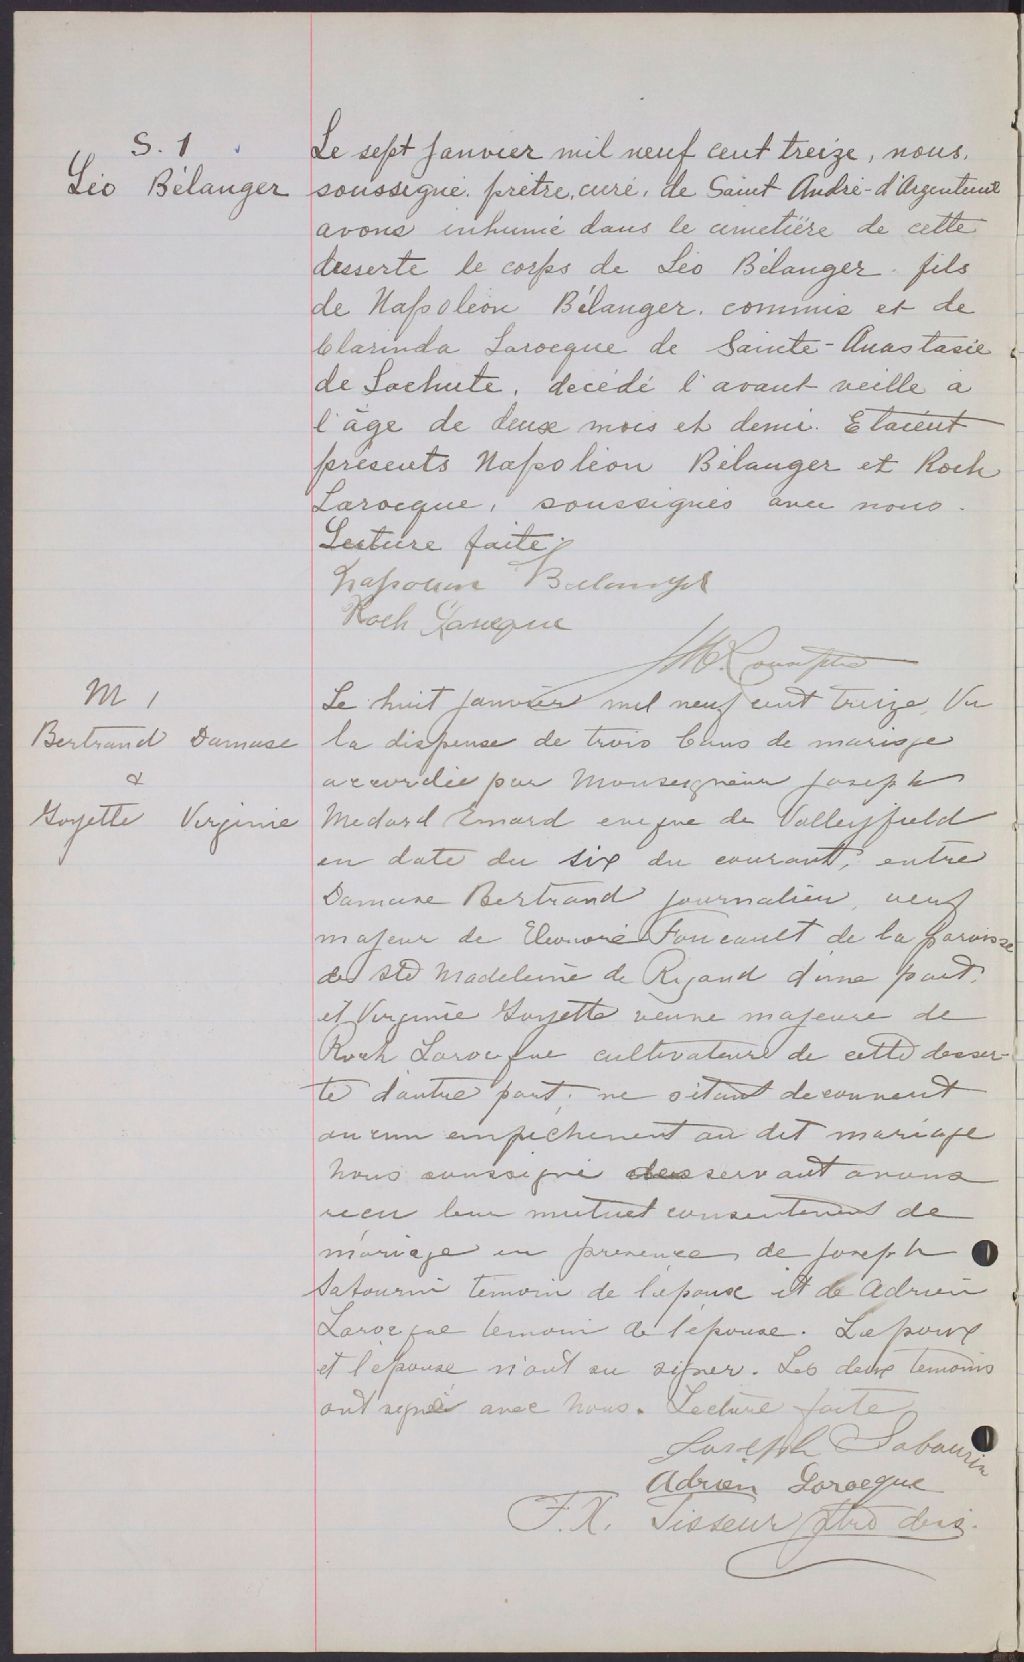 S. 1
Léo Bélanger
Le sept janvier mil neuf cent treize, nous,
soussigné, prêtre, curé, de Saint André-d'Argenteuil
avons inhumé dans le cimetière de cette
desserte le corps de Léo Bélanger, fils
de Napoléon Bélanger, commis et de
Clarinda Larocque de Sainte-Anastasie
de Lachute, décédé l'avant veille a
l'âge de deux mois et demi. Etaient
présents Napoléon Bélanger et Roch
Larocque, soussignés avec nous.
Lecture faite.
Napoleon Belanger
Roch Larocque
M 1
Bertrand Damase
&
Goyette Virginie
Le huit janvier mil neuf cent treize, Vu
la dispense de trois bans de mariage
accordée par Monseigneur Joseph
Medard Emard eveque de Valleyfield
en date du six du courant, entre
Damase Bertrand journalier, veuf
majeur de Eleonore Foucault de la paroisse
de Ste Madeleine de Rigaud d'une part,
et Virginie Goyette veuve majeure de
Roch Larocque cultivateur de cette desser-
te d'autre part; ne s'étant decouvert
aucun empêchement au dit mariage
Nous soussigné desservant avons
recu leur mutuel consentement de
mariage en presence de Joseph
Sabourin temoin de l'epoux et de Adrien
Larocque temoin de l'épouse. L'epoux
et l'épouse n'ont su signer. Les deux temoins
ont signé avec Nous. Lecture faite
Joseph Sabourin
Adrien Larocque
F. X. Tisseur ptre des.